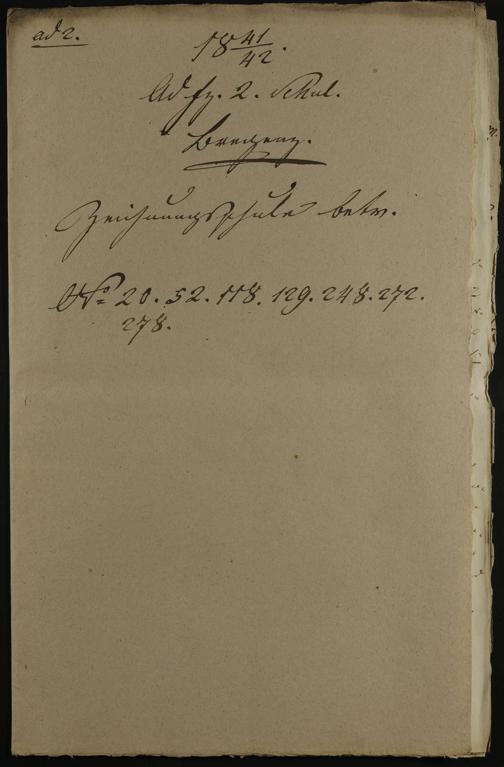 ad 2.
18 41/42.
Ad fz. 2. Schul.
Bregenz.
Zeichnungsschule betr.
No 20. 52. 118. 129. 248. 272.
278.